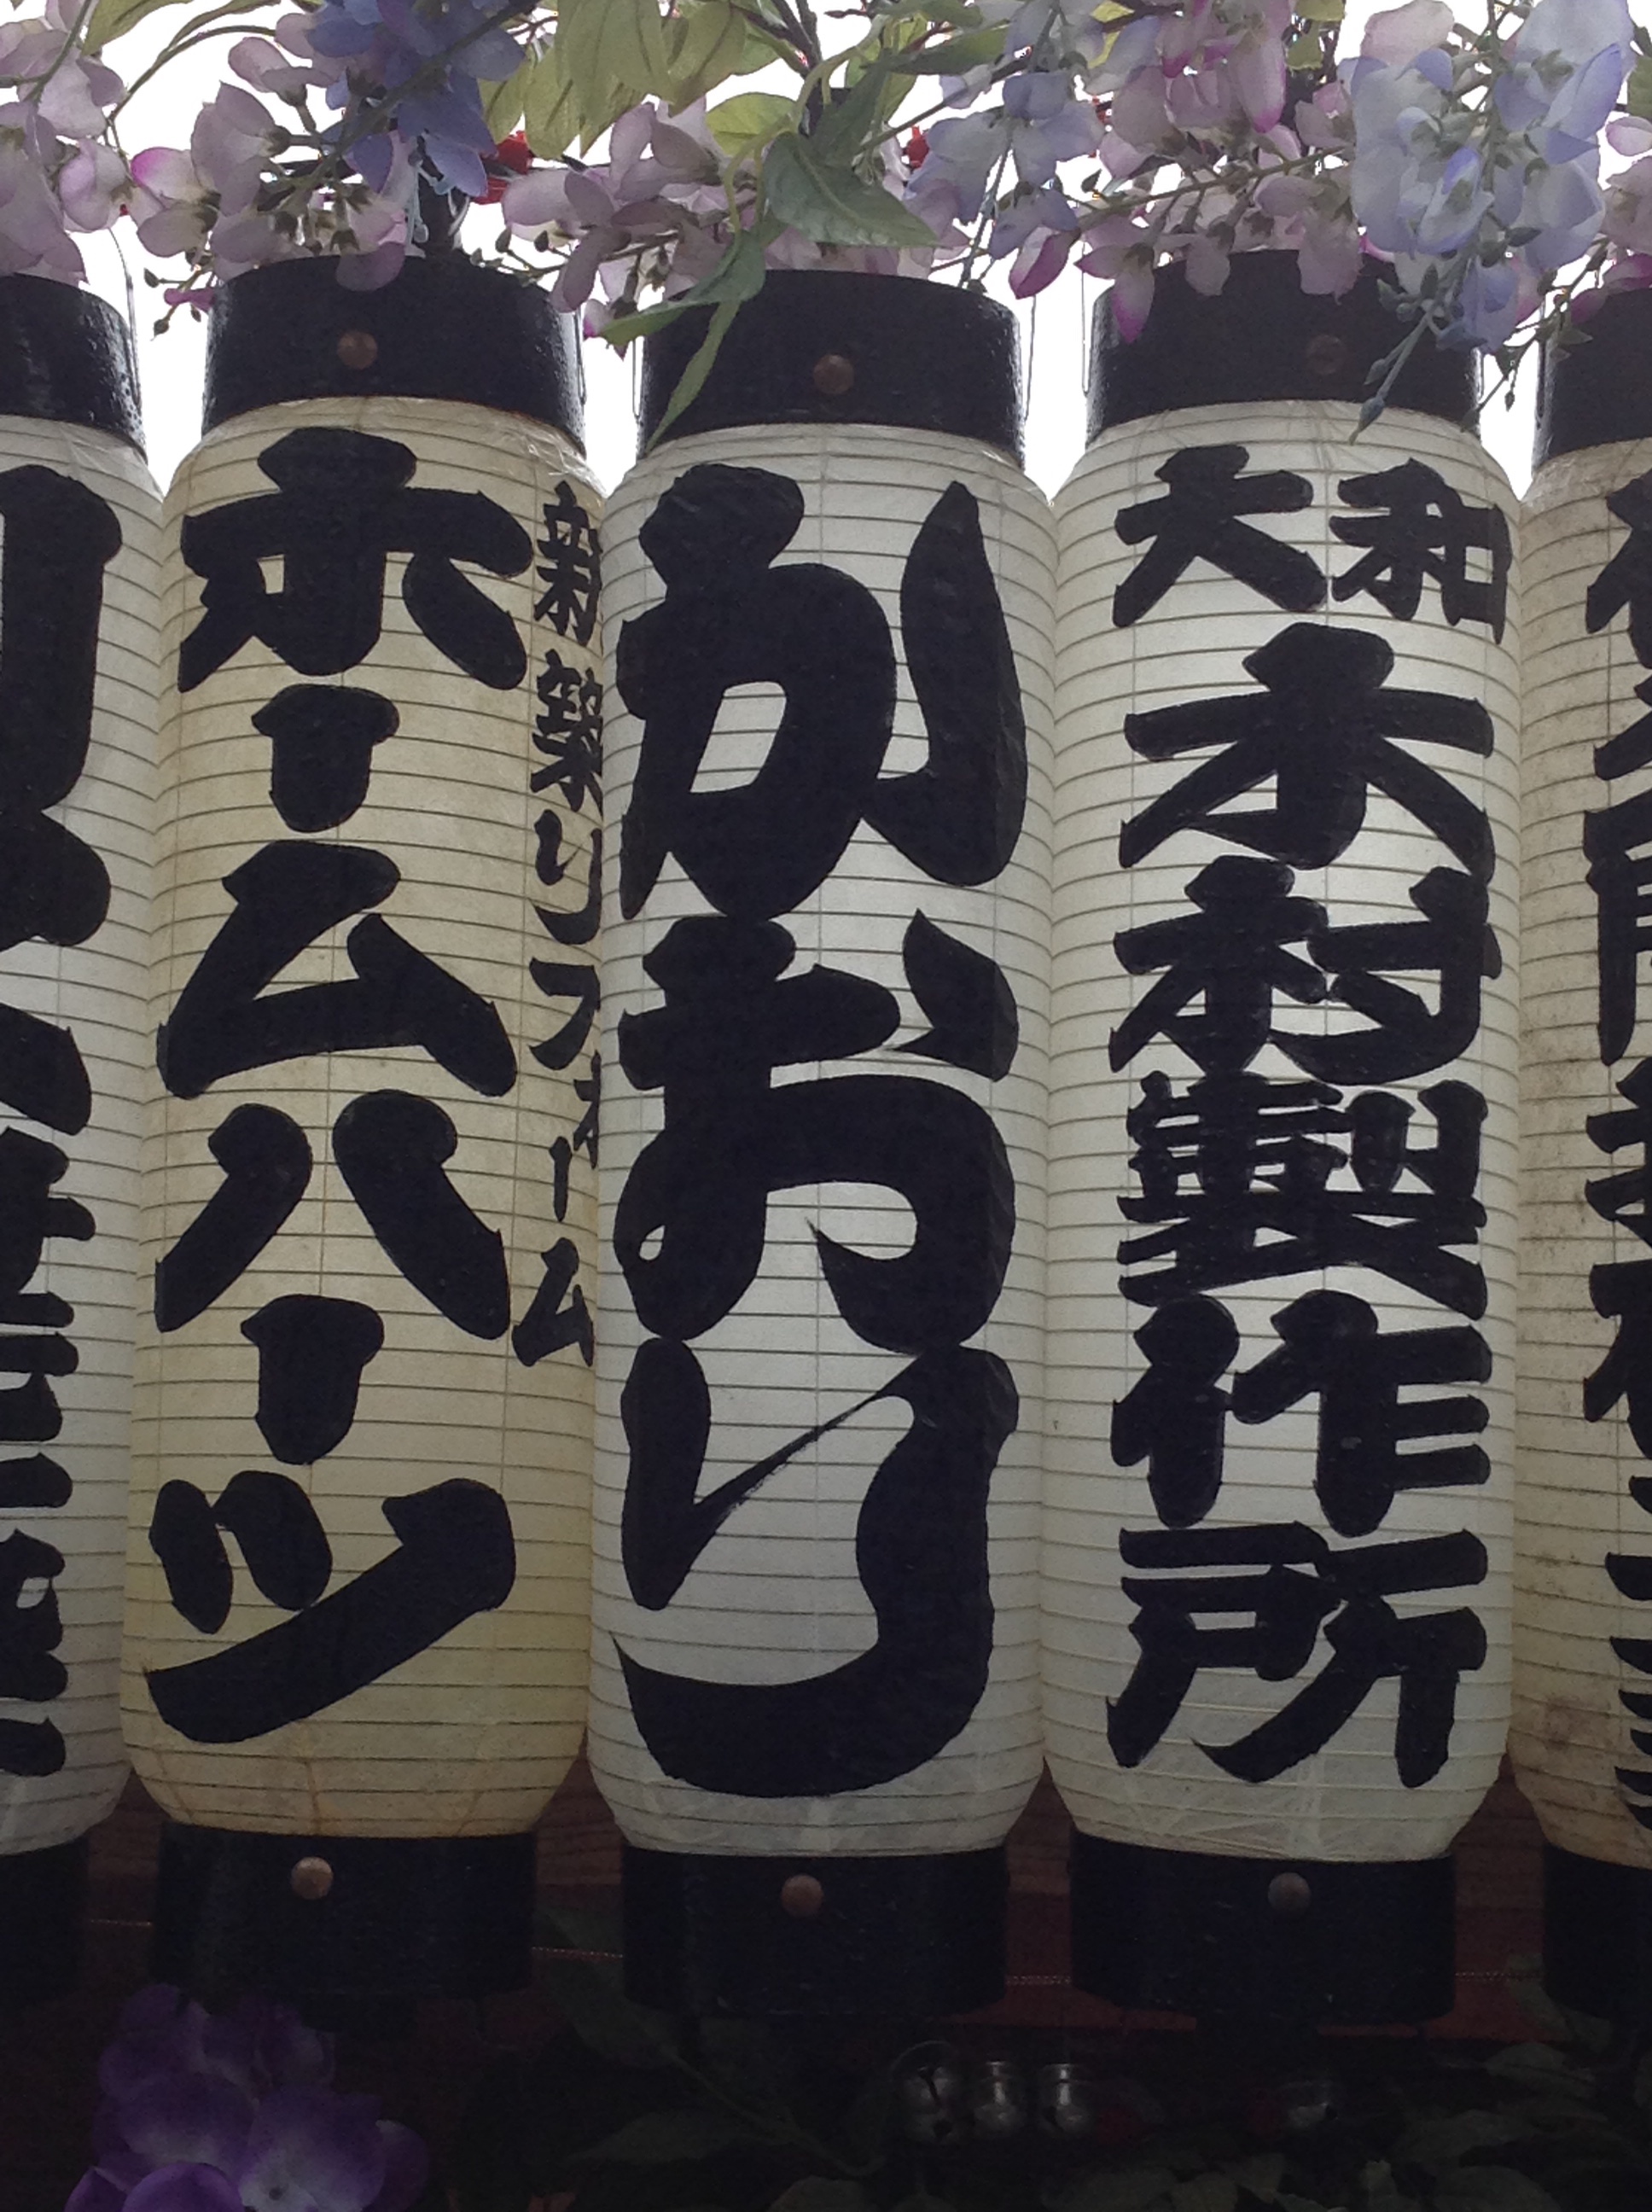 大和
木村製作所
かおり
新築リフォーム
ホームハーツ